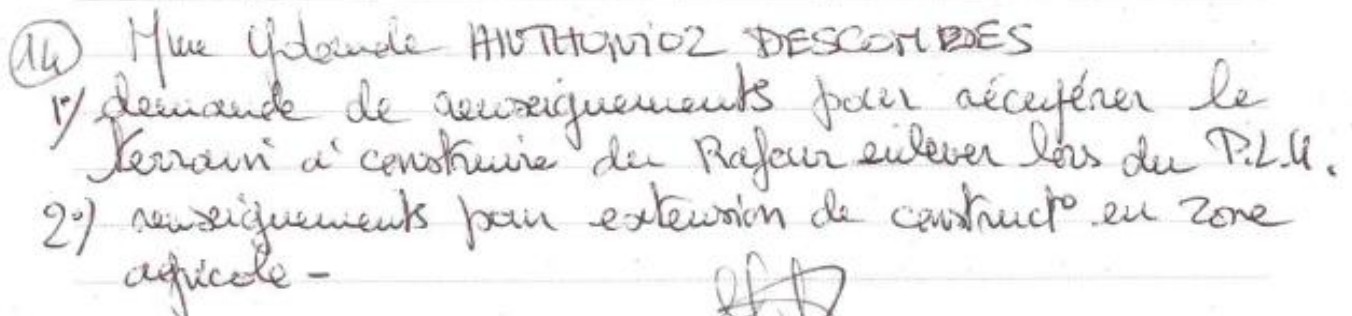 14 Mme Yolande ANTHONIOZ DESCOMBES
1°/ demande de renseignements pour récupérer le
terrain à construire du Rafour enlever lors du P.L.U.
2°/ renseignements pour extension de construct° en zone
agricole -